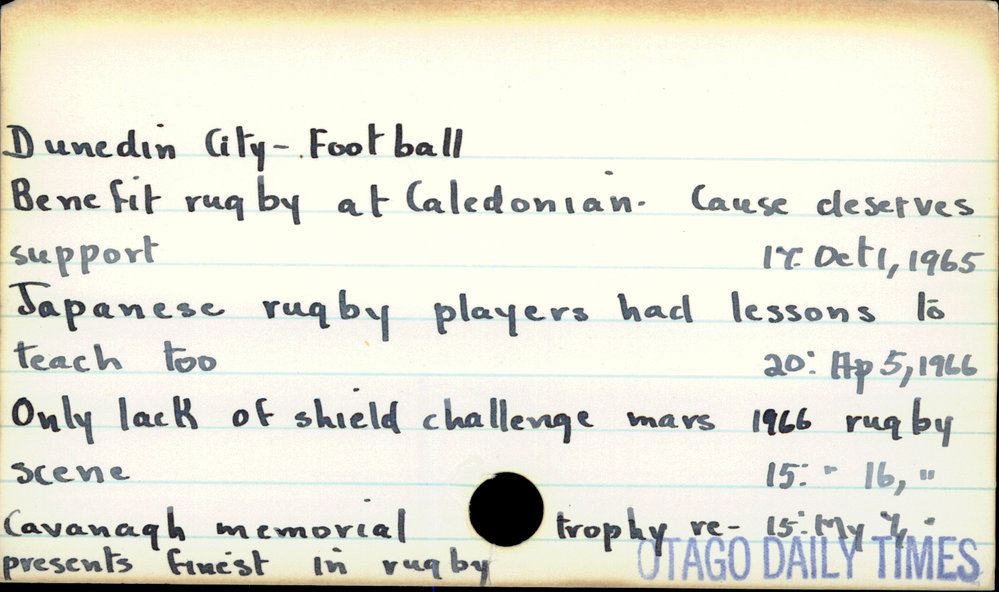 Dunedin City - Football
Benefit rugby at Caledonian. Cause deserves
support 17: Oct 1, 1965
Japanese rugby players had lessons to
teach too 20: Ap 5, 1966
Only lack of shield challenge mars 1966 rugby
scene 15: " 16, "
Cavanagh memorial trophy re- 15: My
presents finest in rugby
OTAGO DAILY TIMES